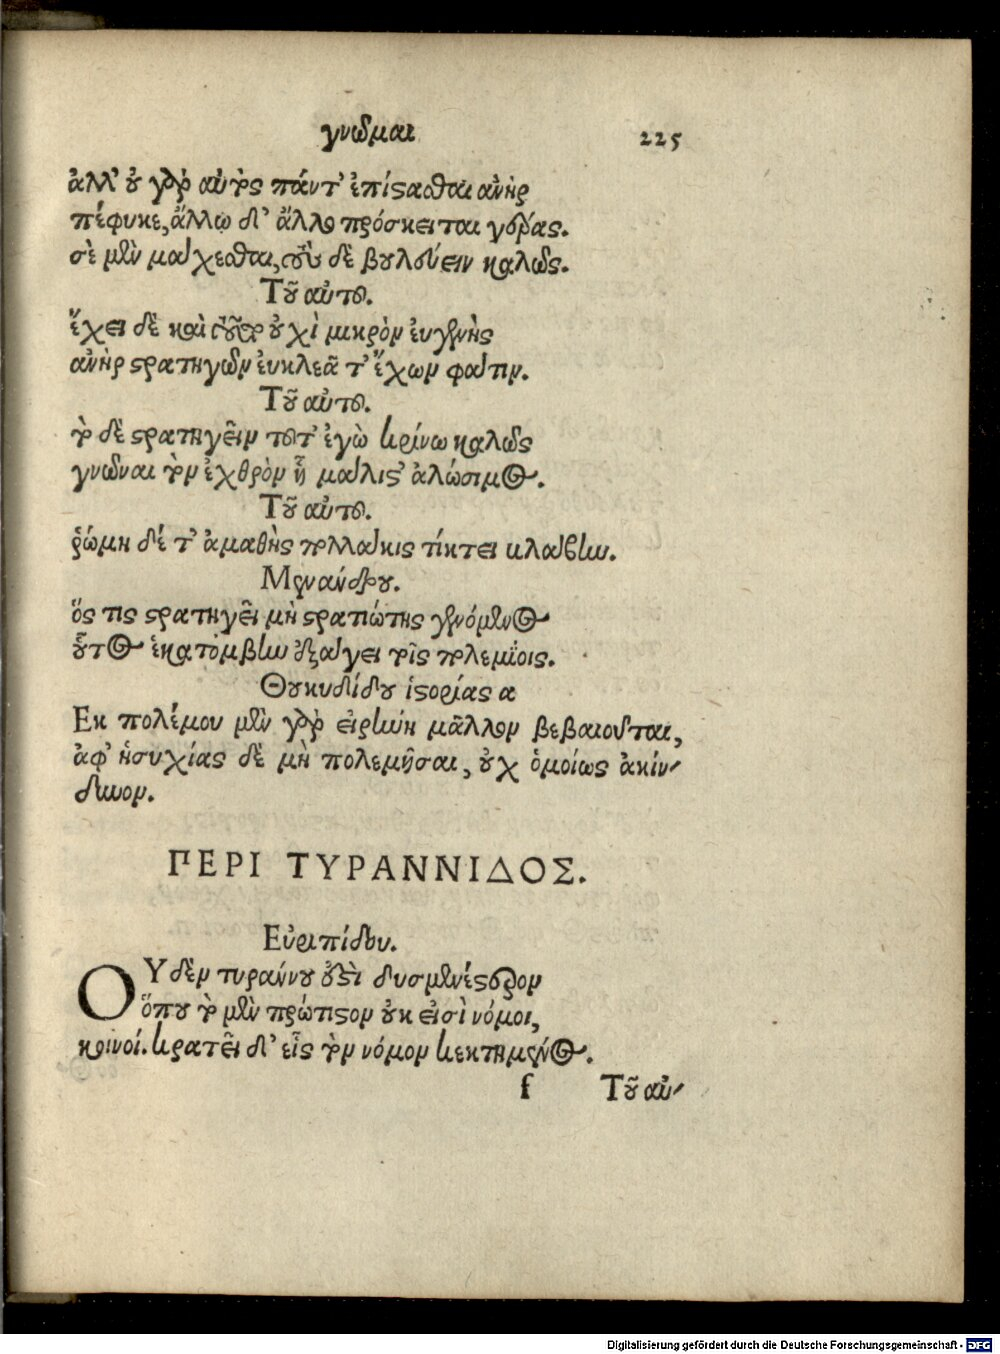 γνῶμαι 225
ἀλλ' οὐ γὰρ αὐτὸς πάντ' ἐπίστασθαι ἀνὴρ
πέφυκε, ἄλλῳ δ' ἄλλο πρόσκειται γέρας.
σὲ μὲν μάχεσθαι, τοὺς δὲ βουλεύειν καλῶς.
Τοῦ αὐτοῦ.
ἔχει δὲ καὶ τοῦτο οὐχὶ μικρὸν εὐγενὴς
ἀνὴρ στρατηγῶν εὐκλεᾶ τ' ἔχων φάτιν.
Τοῦ αὐτοῦ.
τὸ δὲ στρατηγεῖν τοῦτ' ἐγὼ κρίνω καλῶς
γνῶναι τὸν ἐχθρὸν ᾗ μάλιστ' ἁλώσιμος.
Τοῦ αὐτοῦ.
ῥώμη δέ τ' ἀμαθὴς πολλάκις τίκτει βλάβην.
Μενάνδρου.
ὅς τις στρατηγεῖ μὴ στρατιώτης γενόμενος
οὗτος ἑκατόμβην ἐξάγει τοῖς πολεμίοις.
Θουκυδίδου ἱστορίας α
Εκ πολέμου μὲν γὰρ εἰρήνη μᾶλλον βεβαιοῦται,
ἀφ' ἡσυχίας δὲ μὴ πολεμῆσαι, οὐχ ὁμοίως ἀκίν-
δυνον.
ΠΕΡΙ ΤΥΡΑΝΝΙΔΟΣ.
Εὐριπίδου.
ΟΥδὲν τυράννου ἐστὶ δυσμενέστερον
ὅπου τὸ μὲν πρώτιστον οὐκ εἰσὶ νόμοι,
κοινοί. κρατεῖ δ' εἷς τὸν νόμον κεκτημένος.
f Τοῦ αὐ-
Digitalisierung gefördert durch die Deutsche Forschungsgemeinschaft - DFG